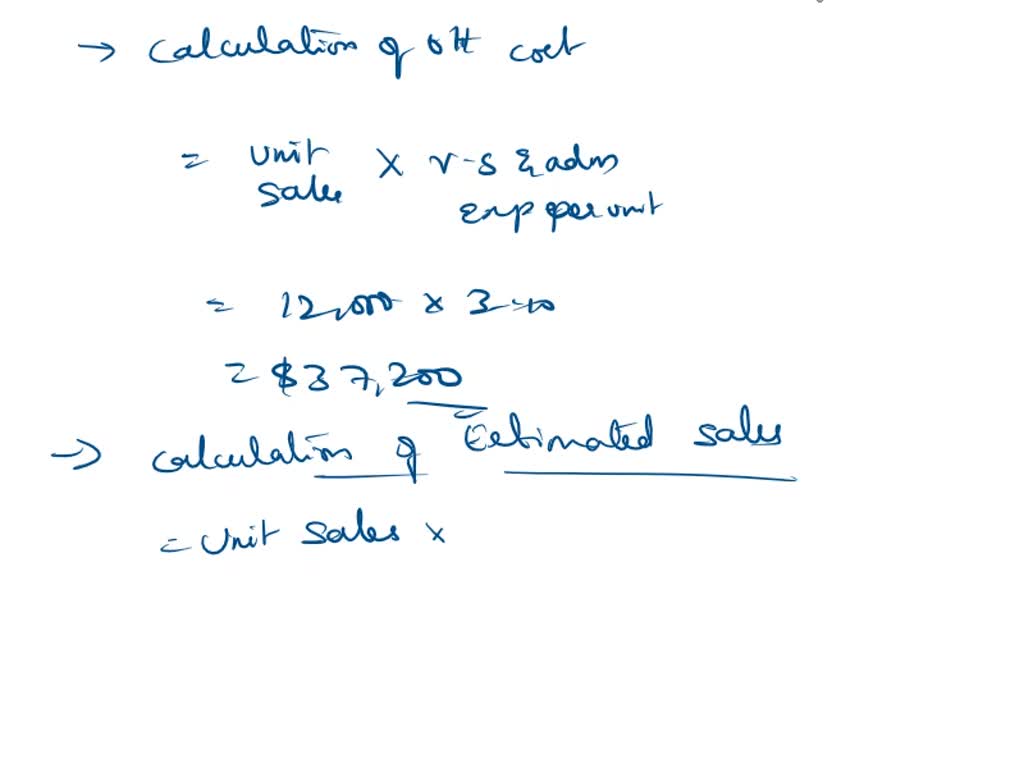 → Calculation of OH cost
= Unit sales × v-s & adm exp per unit
= 12,000 ×
= $37,200
→ Calculation of Estimated sales
= Unit sales ×